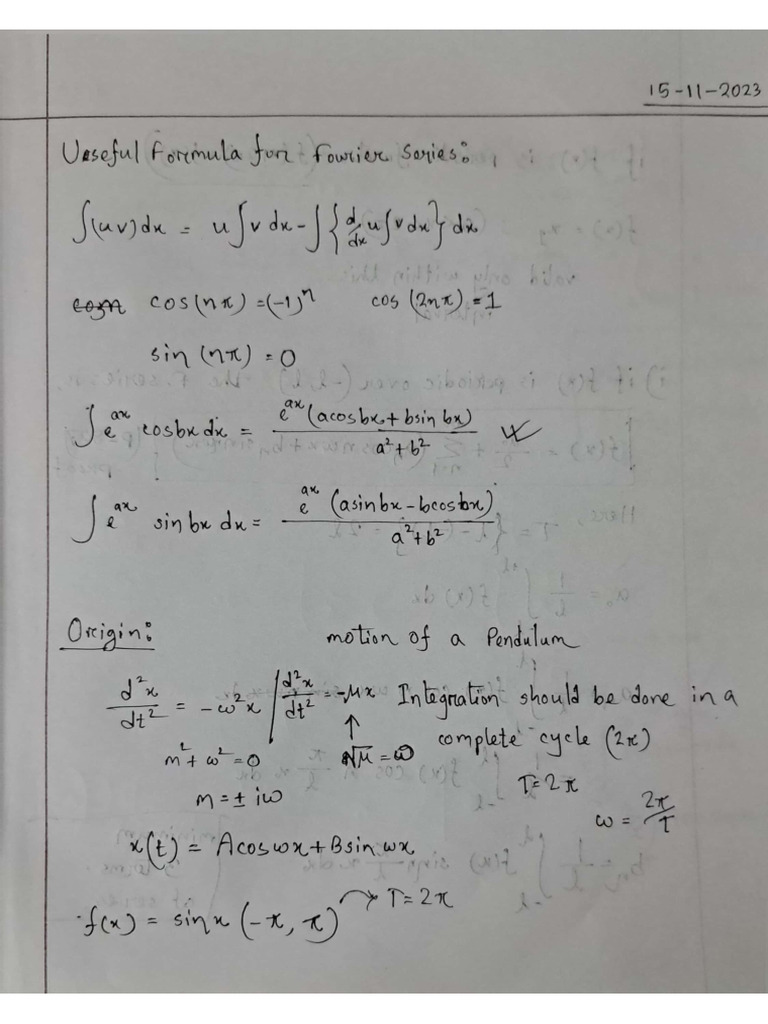 15-11-2023
Useful Formula for Fourier Series:
∫(uv)dx = u∫v dx - ∫{d/dx u∫v dx} dx
cos(nπ) = (-1)^n   cos(2nπ) = 1
sin(nπ) = 0
∫e^ax cosbx dx = e^ax (acosbx + bsin bx) / a²+b²
∫e^ax sin bx dx = e^ax (asinbx - bcosbx) / a²+b²
Origin:   motion of a Pendulum
d²x/dt² = -ω²x | d²x/dt² = -μx   Integration should be done in a
m² + ω² = 0   ↑ √μ = ω   complete cycle (2π)
m = ± iω   T = 2π
ω = 2π/T
x(t) = A cos ωx + B sin ωx
f(x) = sinx (-π, π) → T = 2π